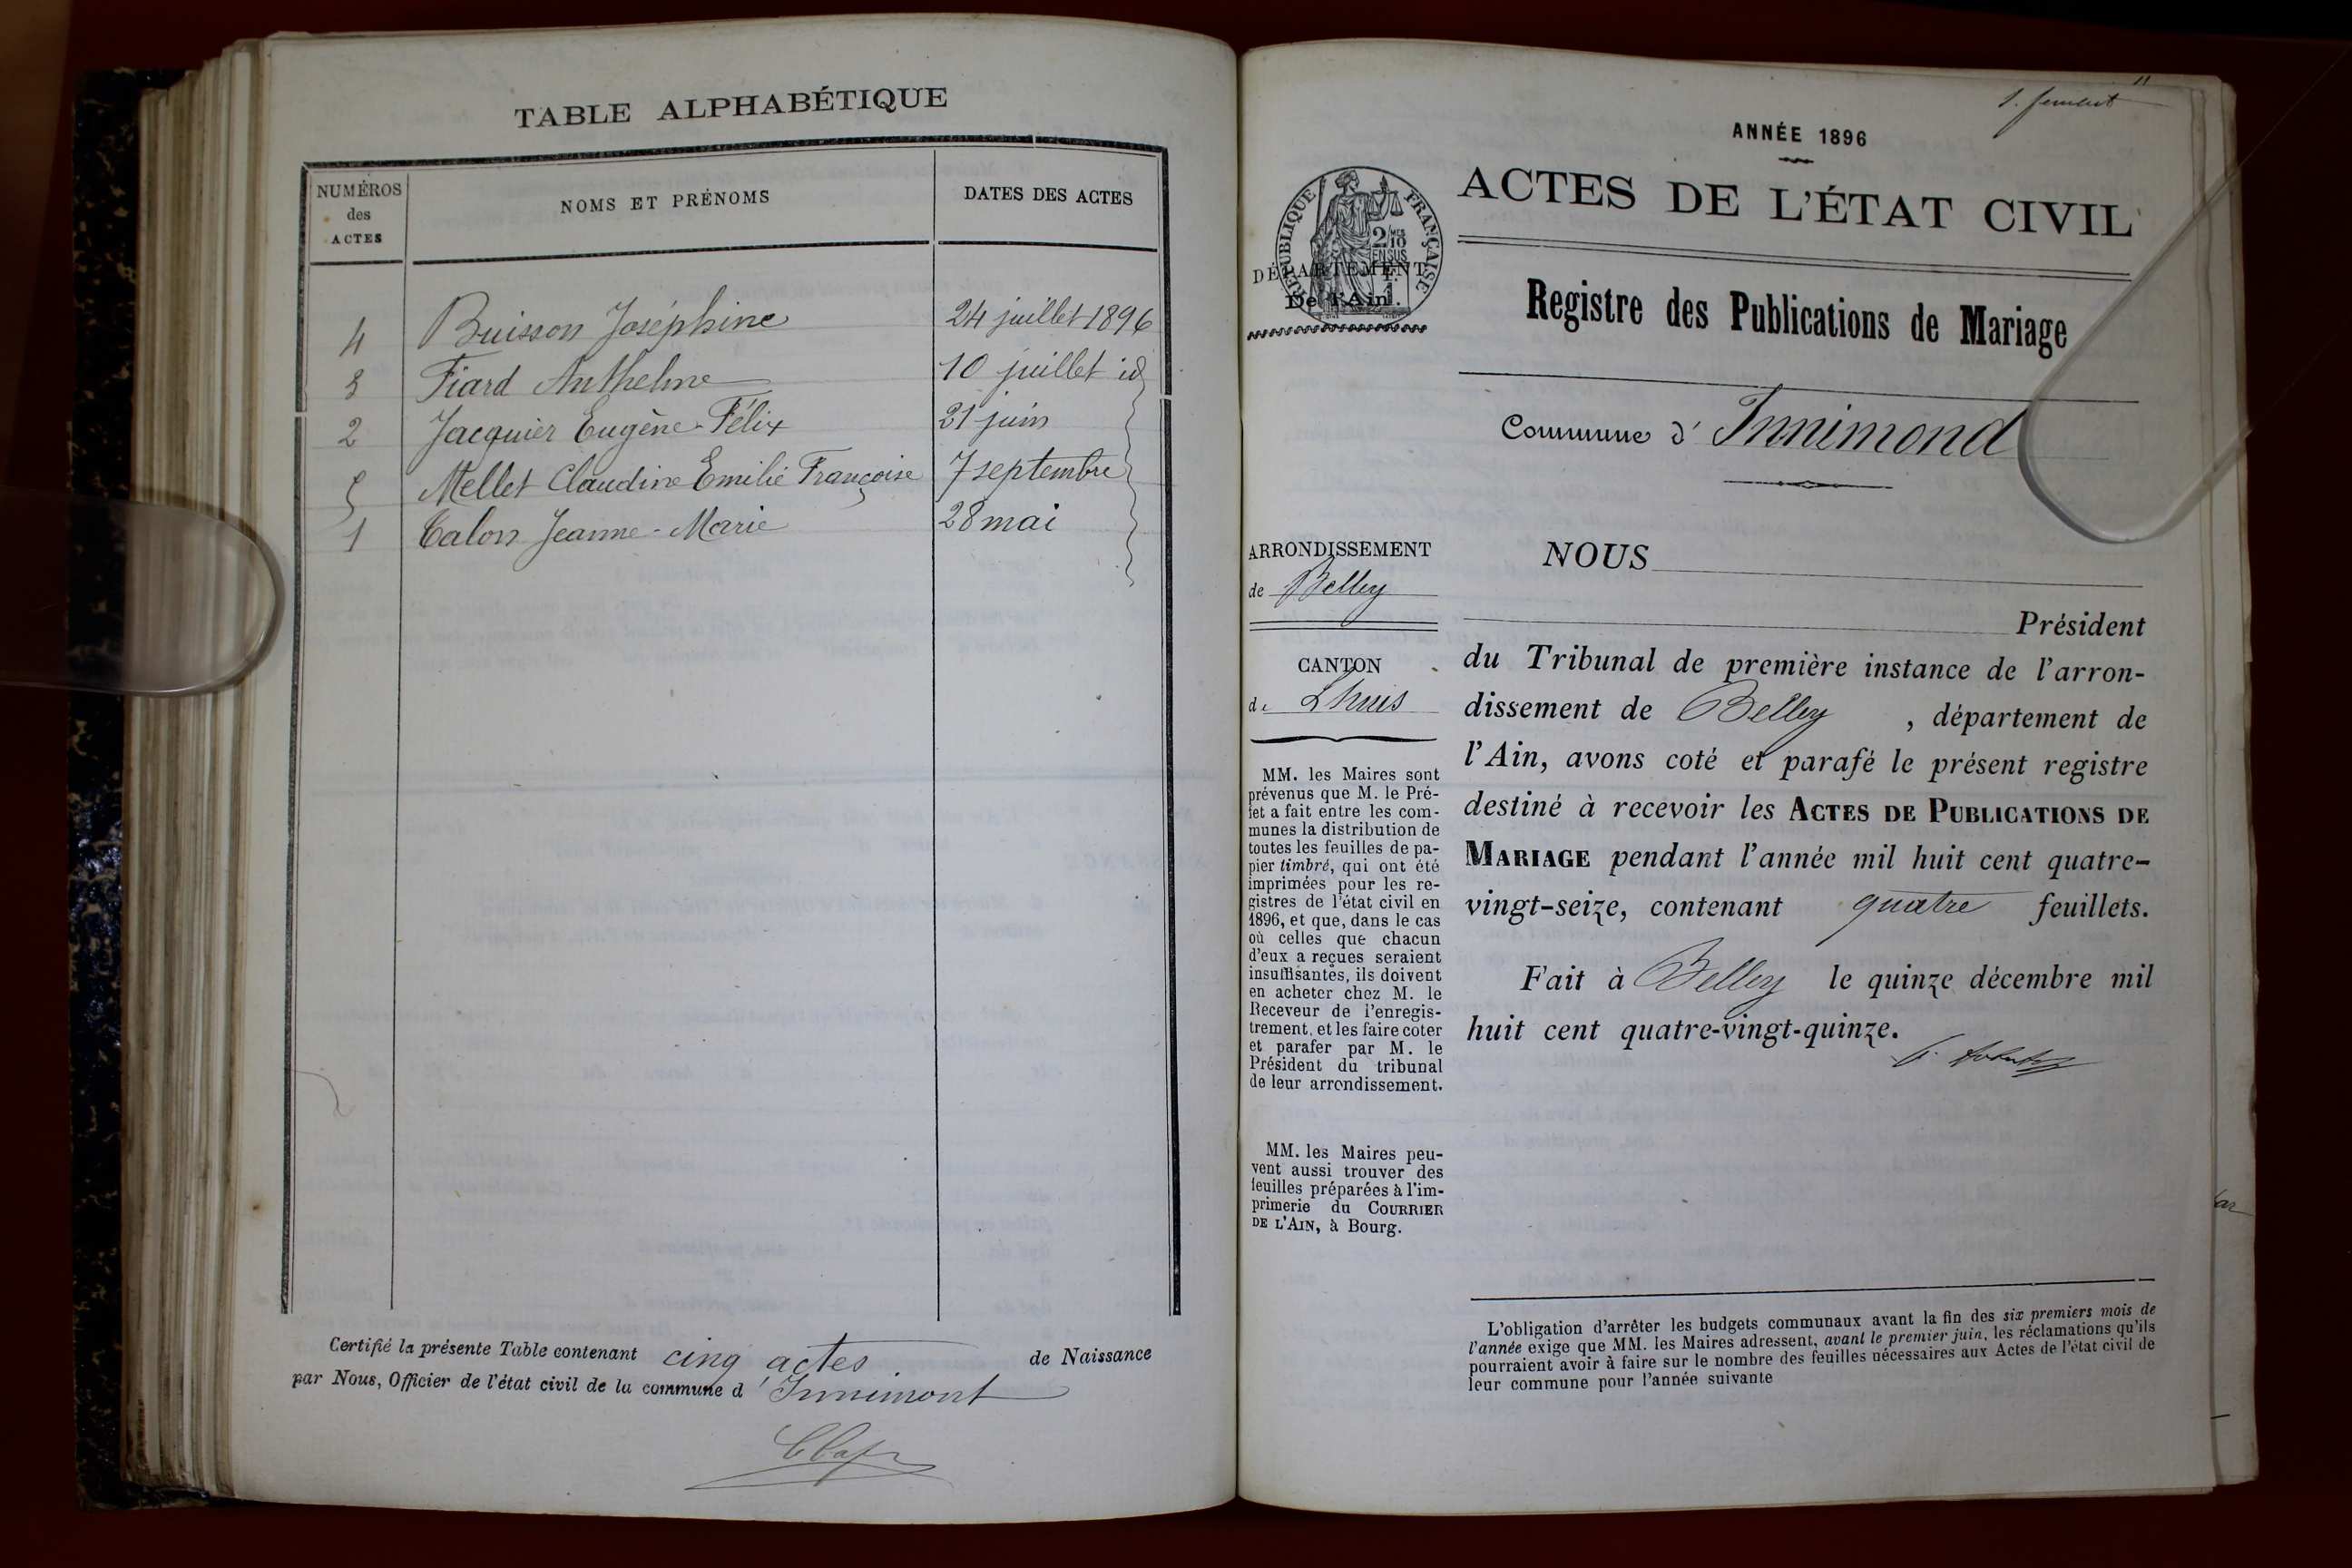 TABLE ALPHABÉTIQUE
NUMÉROS
des
ACTES
NOMS ET PRÉNOMS
DATES DES ACTES
4 Buisson Joséphine 24 juillet 1896
3 Fiard Anthelme 10 juillet id
2 Jacquier Eugène-Félix 21 juin
5 Mellet Claudine Emilie Françoise 7 septembre
1 Calon Jeanne-Marie 28 mai
Certifié la présente Table contenant cinq actes de Naissance
par Nous, Officier de l'état civil de la commune d'Innimont
ANNÉE 1896
ACTES DE L'ÉTAT CIVIL
RÉPUBLIQUE FRANÇAISE
DÉPARTEMENT
De l'Ain.
Registre des Publications de Mariage
Commune d'Innimond
ARRONDISSEMENT
de Belley
CANTON
de Lhuis
MM. les Maires sont
prévenus que M. le Pré-
fet a fait entre les com-
munes la distribution de
toutes les feuilles de pa-
pier timbré, qui ont été
imprimées pour les re-
gistres de l'état civil en
1896, et que, dans le cas
où celles que chacun
d'eux a reçues seraient
insuffisantes, ils doivent
en acheter chez M. le
Receveur de l'enregis-
trement, et les faire coter
et parafer par M. le
Président du tribunal
de leur arrondissement.
MM. les Maires peu-
vent aussi trouver des
feuilles préparées à l'im-
primerie du COURRIER
DE L'AIN, à Bourg.
NOUS
Président
du Tribunal de première instance de l'arron-
dissement de Belley, département de
l'Ain, avons coté et parafé le présent registre
destiné à recevoir les ACTES DE PUBLICATIONS DE
MARIAGE pendant l'année mil huit cent quatre-
vingt-seize, contenant quatre feuillets.
Fait à Belley le quinze décembre mil
huit cent quatre-vingt-quinze.
L'obligation d'arrêter les budgets communaux avant la fin des six premiers mois de
l'année exige que MM. les Maires adressent, avant le premier juin, les réclamations qu'ils
pourraient avoir à faire sur le nombre des feuilles nécessaires aux Actes de l'état civil de
leur commune pour l'année suivante